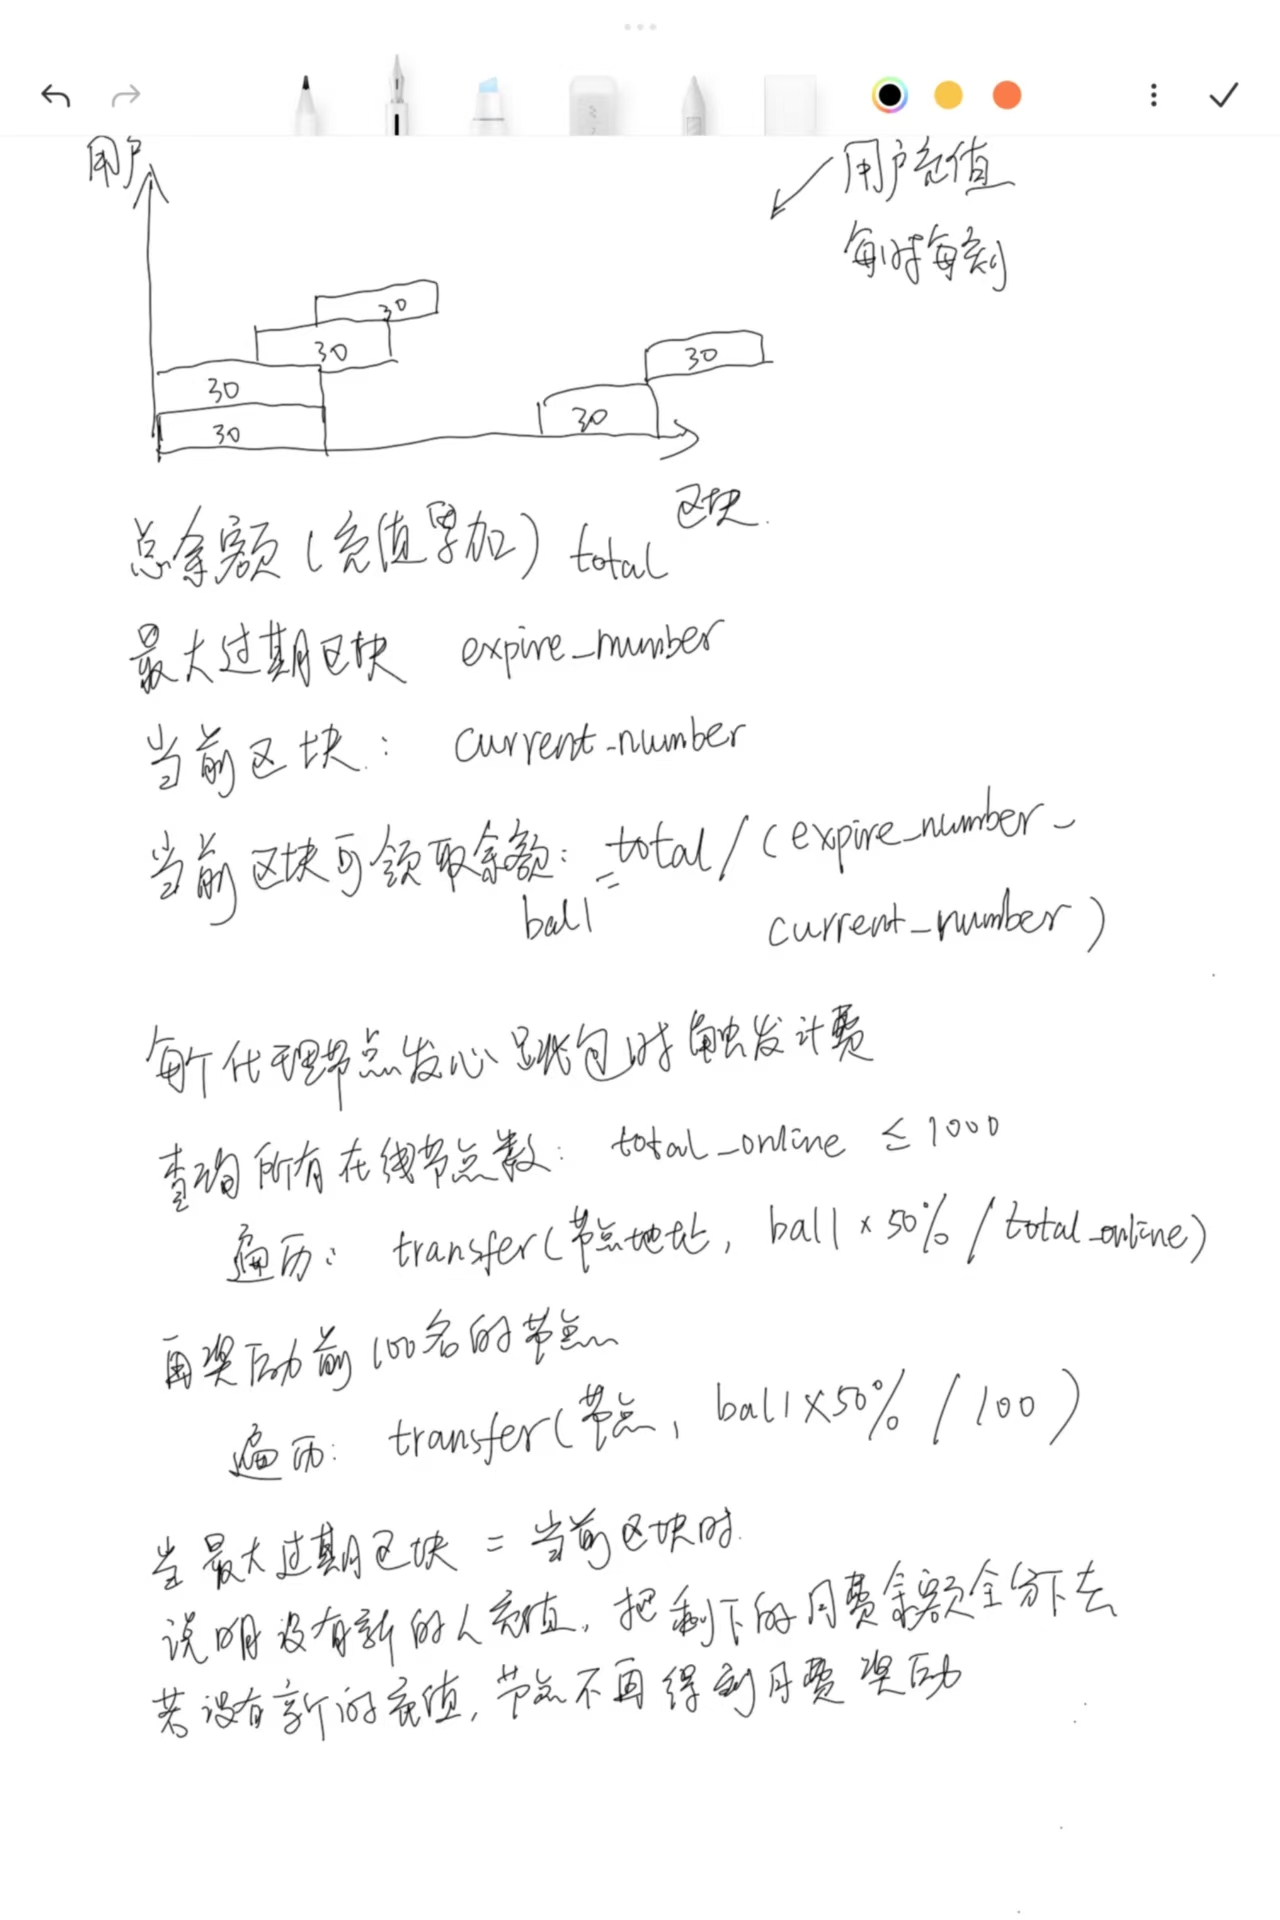 用户
用户充值
每时每刻
30
30
30
30
30
30
区块.
总余额(充值累加) total
最大过期区块 expire_number
当前区块: current_number
当前区块可领取余额: ball = total/(expire_number-
current_number)
每个代理节点发心跳包时触发计费
查询所有在线节点数: total_online ≤1000
遍历: transfer(节点地址, ball×50%/total_online)
再奖励前100名的节点
遍历: transfer(节点, ball×50%/100)
当最大过期区块=当前区块时.
说明没有新的人充值, 把剩下的月费余额全分下去
若没有新的充值, 节点不再得到月费奖励